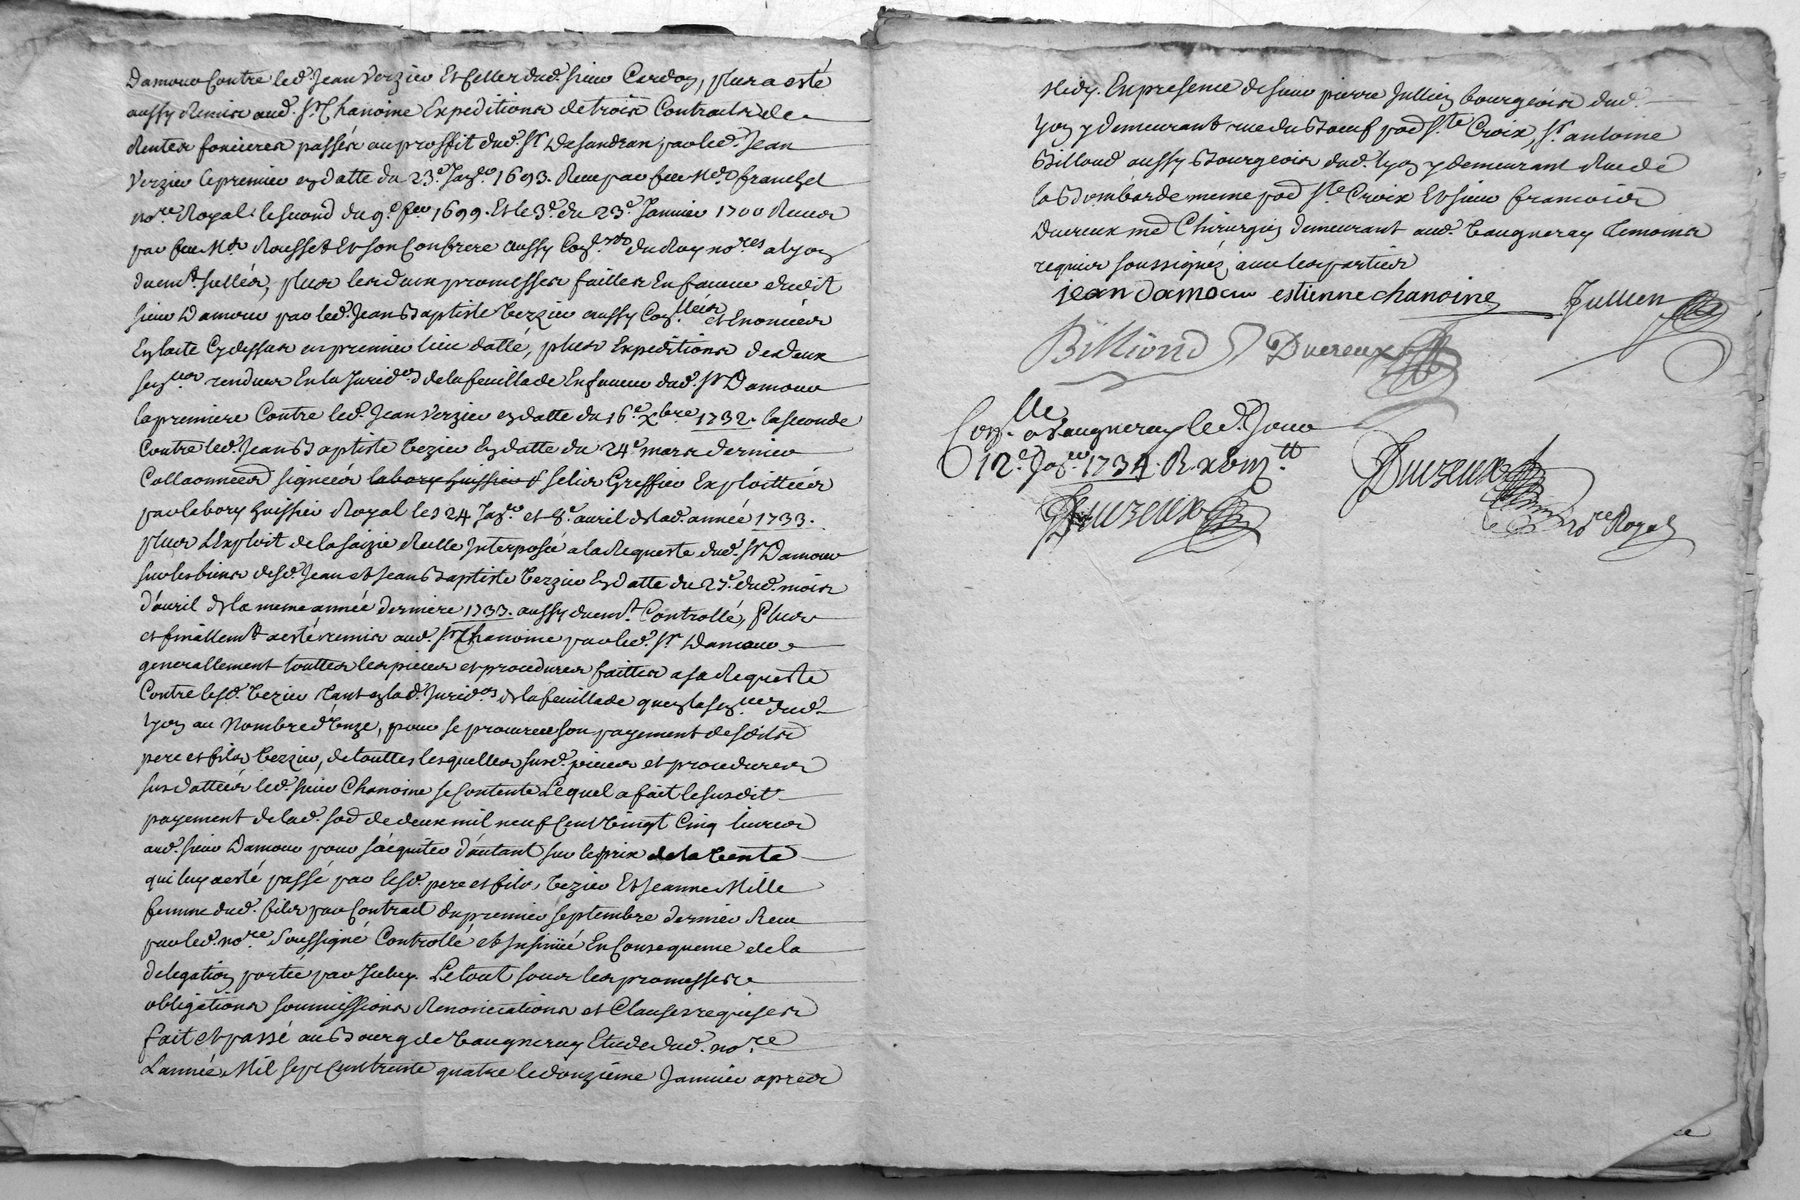 Damour Contre led. Jean Verzieu Et Celles dud. sieur Cerdon, plus a esté
aussy Remis aud. Sr. Chanoine Expeditions de trois Contracts de
Rentes foncieres passés au proffit dud. Sr. Desandran par led. Jean
Verzieu le premier en datte du 23e Janv. 1693. Receu par feu Me franchet
nore. Royal, le second du 9e fev 1699. Et le 3e. du 23e. Janvier 1700 Receus
par feu Me Rousset Et son Confrere aussy Coners du Roy nores a Lyon
duemt. scellés, plus les deux promesses faittes En faveur dudit
sieur Damour par led. Jean Baptiste Verzieu aussy Conllées et Enoncées
En laite Cydessus en premier lieu datté, plus Expeditions des deux
senes rendues En la Juridon de la feuillade En faveur dud. Sr Damour
la premiere Contre led. Jean Verzieu en datte du 16e. xbre 1732. la seconde
Contre led. Jean Baptiste Verzieu En datte du 24e mars dernier
Collaonnées signées labory huissier & Selier Greffier Exploittées
par labory huissier Royal les 24 Janv. et 8e. avril de lad. année 1733.
plus L'Exploit de la saizie Reelle Interposée a la Requeste dud. Sr Damour
sur les biens desd. Jean et Jean Baptiste Verzieu En datte du 27e. dud. mois
d'avril de la meme année derniere 1733. aussy duemt. Controllé, Plus
et finallemt. a esté remis aud. Sr. Chanoine par led. Sr. Damour
generallement touttes les pieces et procedures faittes a sa Requeste
Contre lesd. Verzieu tant en lad. Juridon de la feuillade qu'en la senée dud.
Lyon au Nombre d'onze, pour se procurer son payement desdits
pere et fils Verzieu, de touttes lesquelles susd. pieces et procedures
susdattées led. sieur Chanoine se Contente Lequel a fait le susdit
payement de lad. so. de deux mil neuf Cent Vingt Cinq livres
aud. sieur Damour pour s'acquiter d'autant sur le prix de la Vente
qui luy a esté passé par lesd. pere et fils, Verzieu Et Jeanne Mille
femme dud. fils par Contrait du premier septembre dernier Receu
par led. nore. soussigné Controllé et Insinüé En Consequence de la
delegation portée par Iceluy. Le tout sous les promesses
obligations soumissions Renonciations et Clauses requises
fait et passé au Bourg de Vaugneray Etude dud. nore.
L'année Mil sept Cent trente quatre le douzieme Janvier apres
Midy. En presence de sieur pierre Jullien bourgeois dud.
Lyon y demeurant rue du Boeuf pod Ste Croix, Sr. antoine
Billioud aussy Bourgeois dud. Lyon y demeurant Rue de
la Bombarde meme pod Ste Croix Et sieur francois
Ducreux me Chirurgien demeurant aud. Vaugneray temoins
requis soussignéz avec les parties
jean damour estienne chanoine Jullien
Billioud Ducreux
Conlle a Vaugneray led. Jour
12e Janer 1734. R xbviii tt
Ducreux
Ducreux
nore Royal